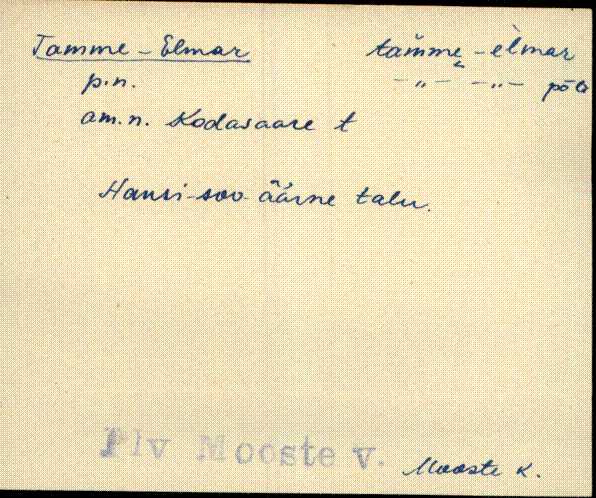 Tamme-Elmar tàmmȩ-èlmar
p.n. -„- -„- põld
am.n. Kodasaare t
Hansi-soo-äärne talu.
Plv Mooste v. Mooste k.